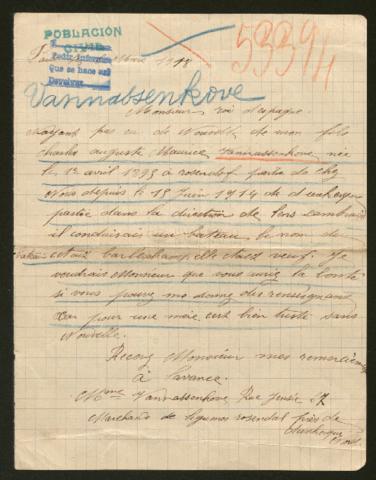 POBLACIÓN
CIVIL
Pedir informes
Que se hace así
Devolver
53394
Vannassenkove
Monsieur roi d'espagne
nayant pas eu de Nouvelle de mon fils
charles auguste Maurice Vannassenhove née
le 1er avril 1893 à rosendal partie de chez
Nous depuis le 15 juin 1914 de dunkerque
partie dans la direction de Lens cambrai
il conduisais un bateau le non de
bateau etait elle etait veuf. Je
voudrais Monsieur que vous auriez la bonté
si vous pouvez me donner des renseignant
Car pour une mère cest bien triste sans
Nouvelle.
Recevez Monsieur mes remerciement
à lavance.
Mme Vannassenhove Rue 57
Marchand de légumes rosendal près de
dunkerque
Nord